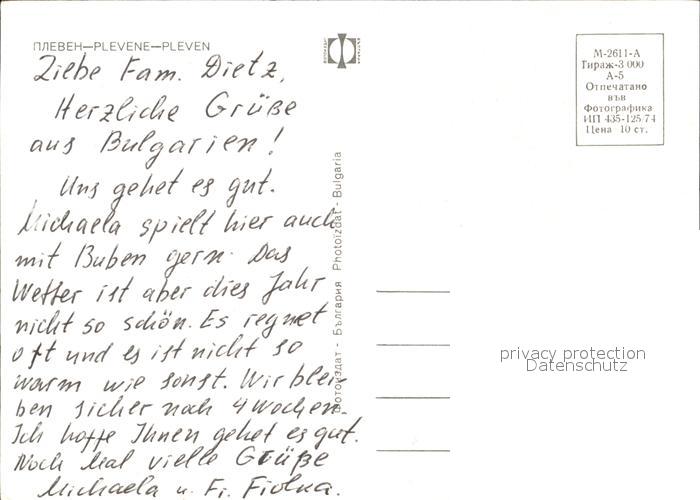 ПЛЕВЕН—PLEVENE—PLEVEN
Liebe Fam. Dietz,
Herzliche Grüße
aus Bulgarien!
Uns gehet es gut.
Michaela spielt hier auch
mit Buben gern. Das
Wetter ist aber dies Jahr
nicht so schön. Es regnet
oft und es ist nicht so
warm wie sonst. Wir blei-
ben sicher noch 4 Wochen.
Ich hoffe Ihnen gehet es gut.
Noch Mal vielle Grüße
Michaela u. Fr. Fiolna.
Фотоиздат - България Photoizdat - Bulgaria
М-2611-А
Тираж-3 000
А-5
Отпечатано
във
Фотографика
ИП 435-125/74
Цена 10 ст.
privacy protection
Datenschutz